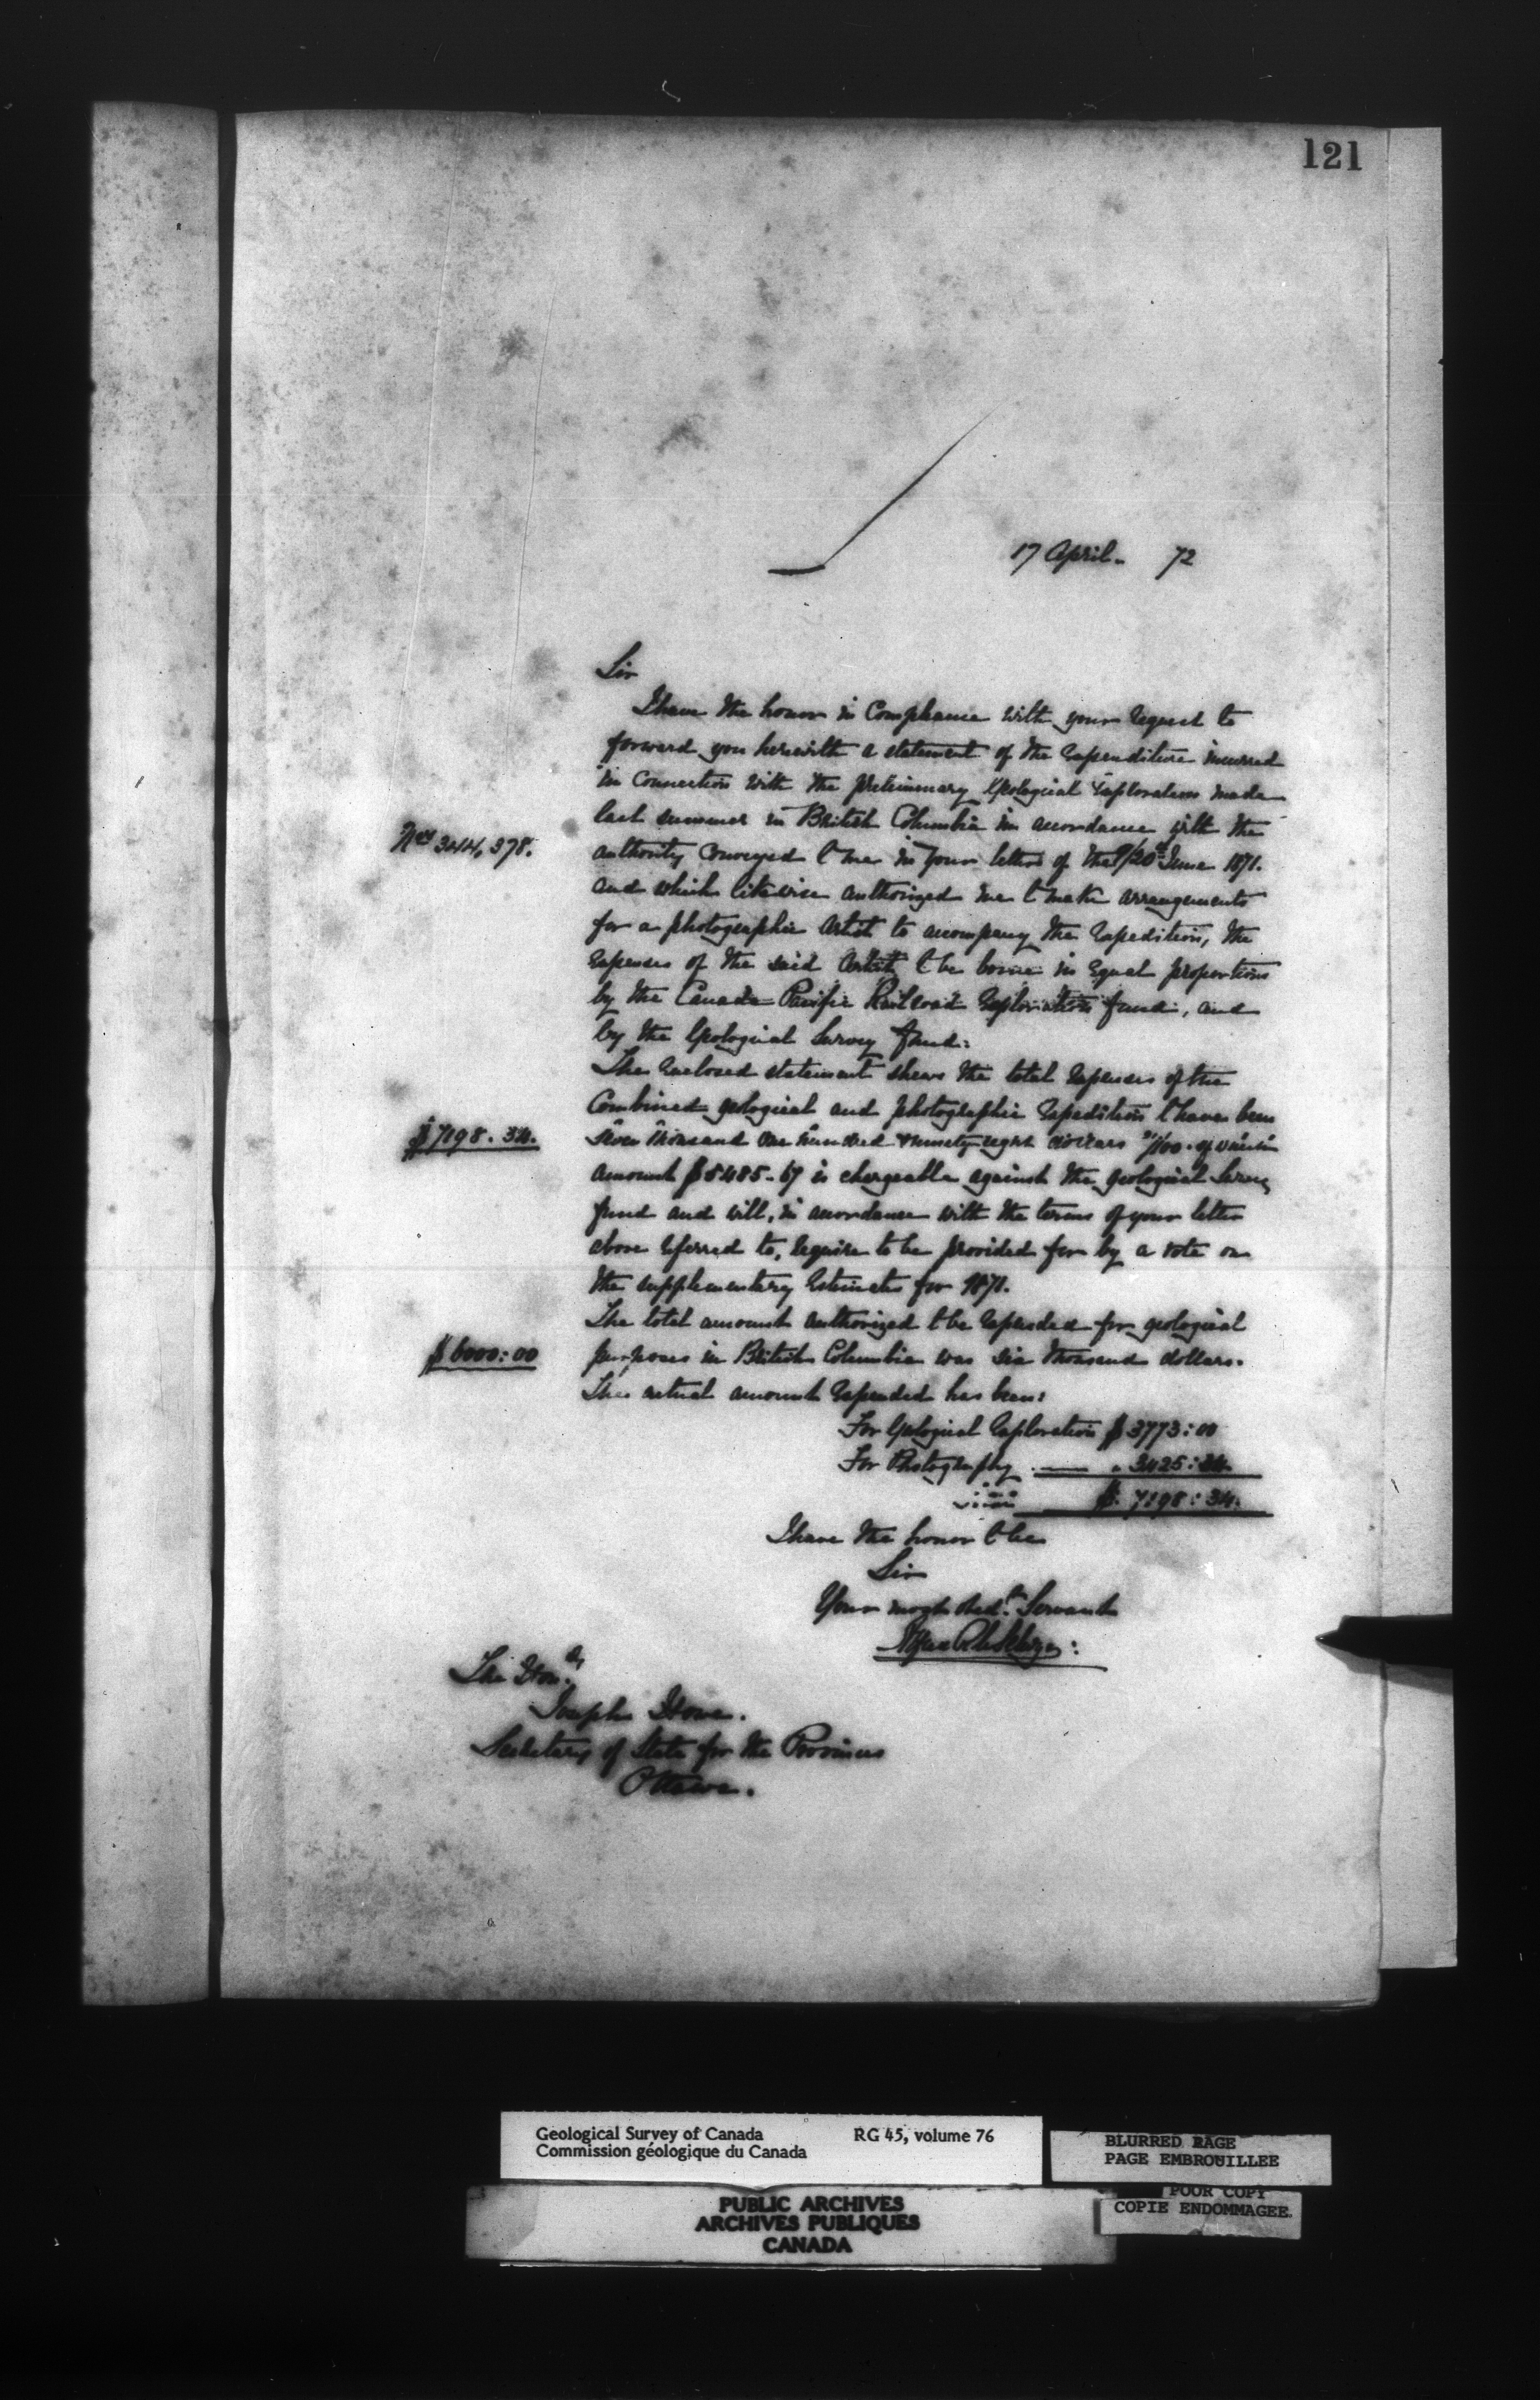 121
17 April. 72
Sir
I have the honor in Compliance with your request to
forward you herewith a statement of the Expenditure incurred
in Connection with the preliminary Geological Exploration made
last summer in British Columbia in accordance with the
Nos 344, 378.
authority Conveyed to me in your letters of the 9/20th June 1871.
and which likewise authorized me to make arrangements
for a photographic Artist to accompany the Expedition, the
Expenses of the said Artist to be borne in Equal proportions
by the Canada Pacific Railroad Exploration fund, and
by the Geological Survey fund:
The Enclosed statement shews the total Expenses of the
Combined geological and photographic Expedition to have been
$7198.34.
Seven thousand one hundred & ninety eight dollars 34/100. of which
amount $5485.67 is chargeable against the geological Survey
fund and will, in accordance with the terms of your letter
above referred to, require to be provided for by a vote on
the supplementary Estimates for 1871.
The total amount authorized to be Expended for geological
$6000:00
purposes in British Columbia was six thousand dollars.
The actual amount Expended has been:
For Geological Exploration $3773:00
For Photography " 3425:34.
$. 7198:34.
I have the honor to be
Sir
Your most obedt. Servant
The Honbl.
Joseph Howe.
Secretary of State for the Provinces
Ottawa.
Geological Survey of Canada RG 45, volume 76
Commission géologique du Canada
BLURRED PAGE
PAGE EMBROUILLEE
POOR COPY
COPIE ENDOMMAGEE.
PUBLIC ARCHIVES
ARCHIVES PUBLIQUES
CANADA